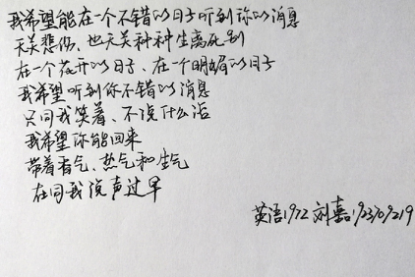 我希望能在一个不错的日子听到你的消息
无关悲伤、也无关种种生离死别
在一个花开的日子、在一个明媚的日子
我希望听到你不错的消息
只同我笑着、不说什么话
我希望你能回来
带着香气、热气和生气
在同我说声过早
英语1912 刘嘉 1923109219